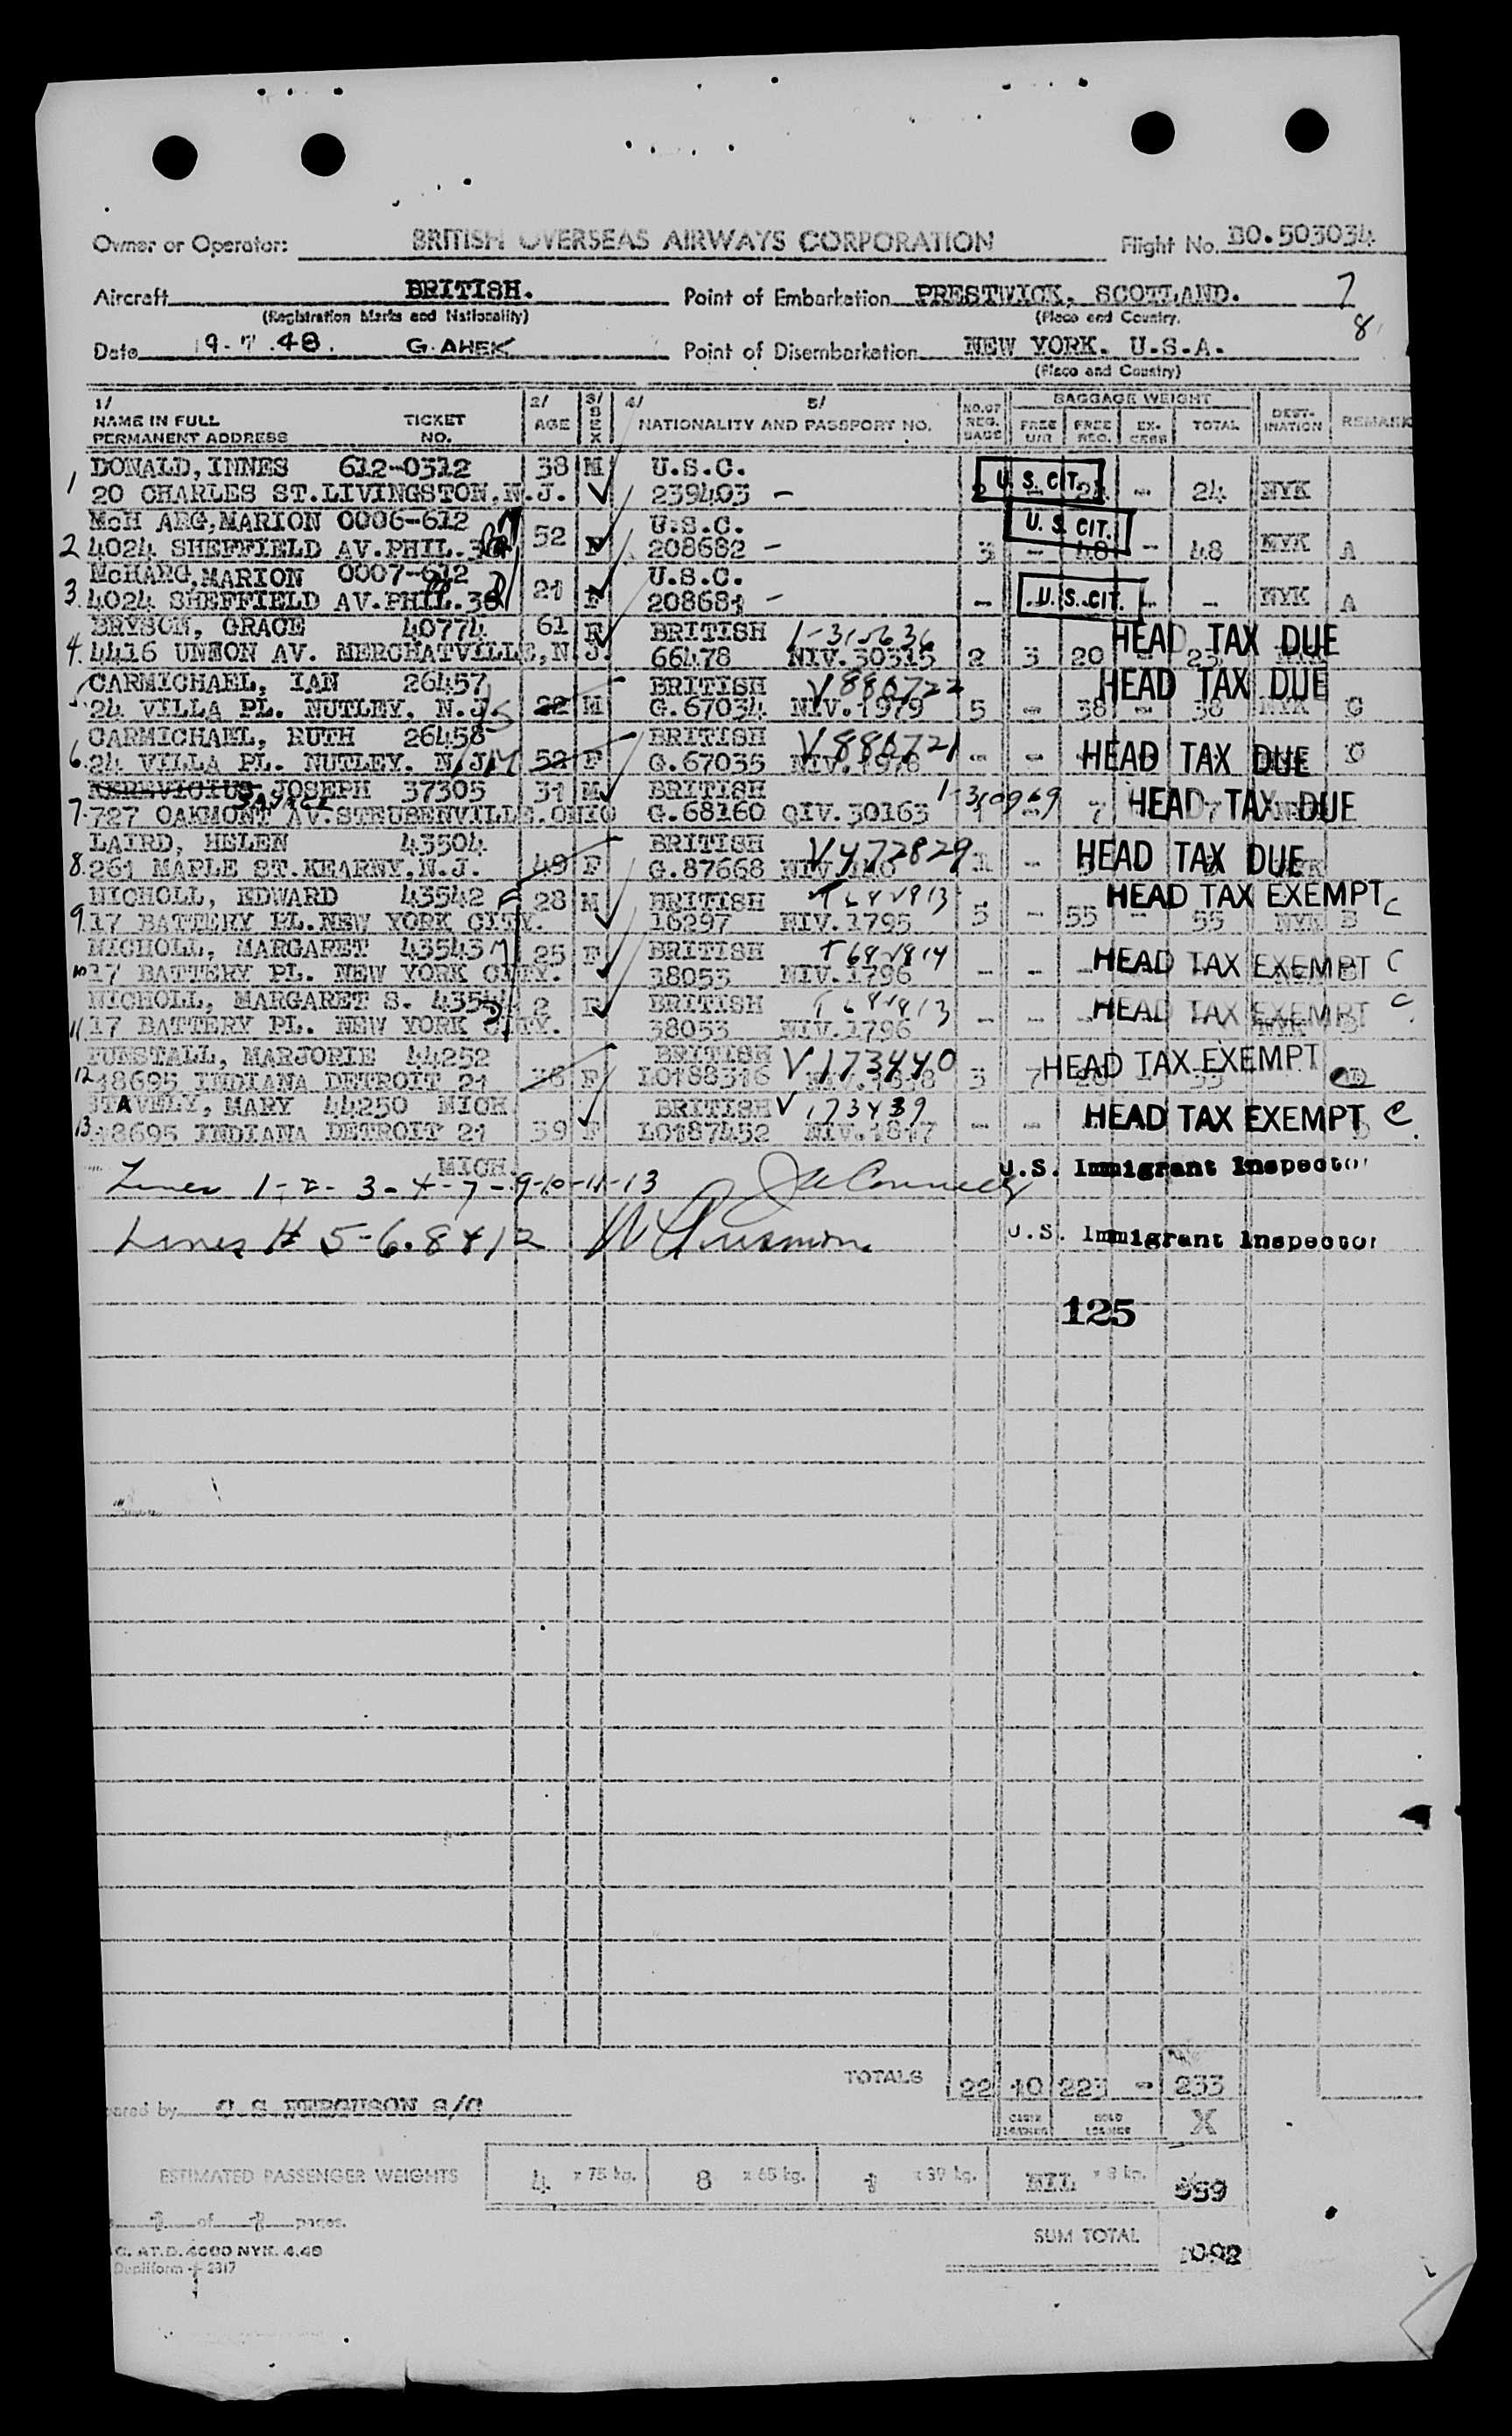 Owner or Operator: BRITISH OVERSEAS AIRWAYS CORPORATION Flight No. BO.503034
Aircraft BRITISH. Point of Embarkation PRESTWICK, SCOTLAND. 7
(Registration Marks and Nationality) (Place and Country. 8
Date 9-7.48. G.AHEK Point of Disembarkation NEW YORK. U.S.A.
(Place and Country)
1/ 2/ 3/ 4/ 5/ NO.OF BAGGAGE WEIGHT
NAME IN FULL TICKET AGE SEX NATIONALITY AND PASSPORT NO. REG. FREE FREE EX- TOTAL DEST- REMARK
PERMANENT ADDRESS NO. BAGS U/R REG. CESS INATION
1 DONALD, INNES 612-0312 38 M U.S.C. U.S. CIT.
20 CHARLES ST.LIVINGSTON.N.J. 239403 - 2 - 24 - 24 NYK
McH ARG,MARION 0006-612 52 F U.S.C. U.S. CIT.
2 4024 SHEFFIELD AV.PHIL. 208682 - 3 - 48 - 48 NYK A
McHARG,MARION 0007-612 21 F U.S.C. U.S. CIT.
3. 4024 SHEFFIELD AV.PHIL. 208681 - - - - NYK A
BRYSON, GRACE 40774 61 F BRITISH HEAD TAX DUE
4. 4416 UNION AV. MERCHATVILLE,N.J. 66478 NIV.30315 2 3 20 - 23
CARMICHAEL, IAN 26457 BRITISH V880722 HEAD TAX DUE
24 VILLA PL. NUTLEY. N.J. 22 M G.67034 NIV.1979 5 - 38 - 38 NYK C
CARMICHAEL, RUTH 26458 BRITISH V880721 HEAD TAX DUE
6. 24 VILLA PL. NUTLEY. N.J. 52 F G.67035 NIV.1978 - - C
JOSEPH 37305 31 M BRITISH 1-310969 HEAD TAX DUE
7. 727 OAKMONT AV.STEUBENVILLE.OHIO G.68160 QIV.30163 1 - 7 7
LAIRD, HELEN 43504 BRITISH V472829 HEAD TAX DUE
8. 261 MAPLE ST.KEARNY.N.J. 49 F G.87668 NIV -
NICHOLL, EDWARD 43542 28 M BRITISH HEAD TAX EXEMPT C
9. 17 BATTERY PL.NEW YORK CITY. 16297 NIV.1795 5 - 55 - 55 NYK B
NICHOLL, MARGARET 43543 25 F BRITISH HEAD TAX EXEMPT C
10 17 BATTERY PL. NEW YORK CITY. 38053 NIV.1796 - - -
NICHOLL, MARGARET S. 2 F BRITISH HEAD TAX EXEMPT C
11 17 BATTERY PL. NEW YORK CITY. 38053 NIV.1796 - - - NYK
TUNSTALL, MARJORIE 44252 BRITISH V173440 HEAD TAX EXEMPT
12 18695 INDIANA DETROIT 21 F LO188316 3 7
STAVELY, MARY 44250 MICH BRITISH V173439 HEAD TAX EXEMPT C.
13. 18695 INDIANA DETROIT 21 39 F LO187452 NIV.1817 - -
MICH.
Lines 1-2-3-4-7-9-10-11-13 U.S. Immigrant Inspector
Lines # 5-6-8 & 12 U.S. Immigrant Inspector
125
TOTALS 22 10 223 - 233
ared by C S FERGUSON S/C CABIN LOADING HOLD LOADING X
ESTIMATED PASSENGER WEIGHTS 4 x 75 kg. 8 x 65 kg. 1 x 39 kg. NIL x 8 kg.
of pages.
SUM TOTAL